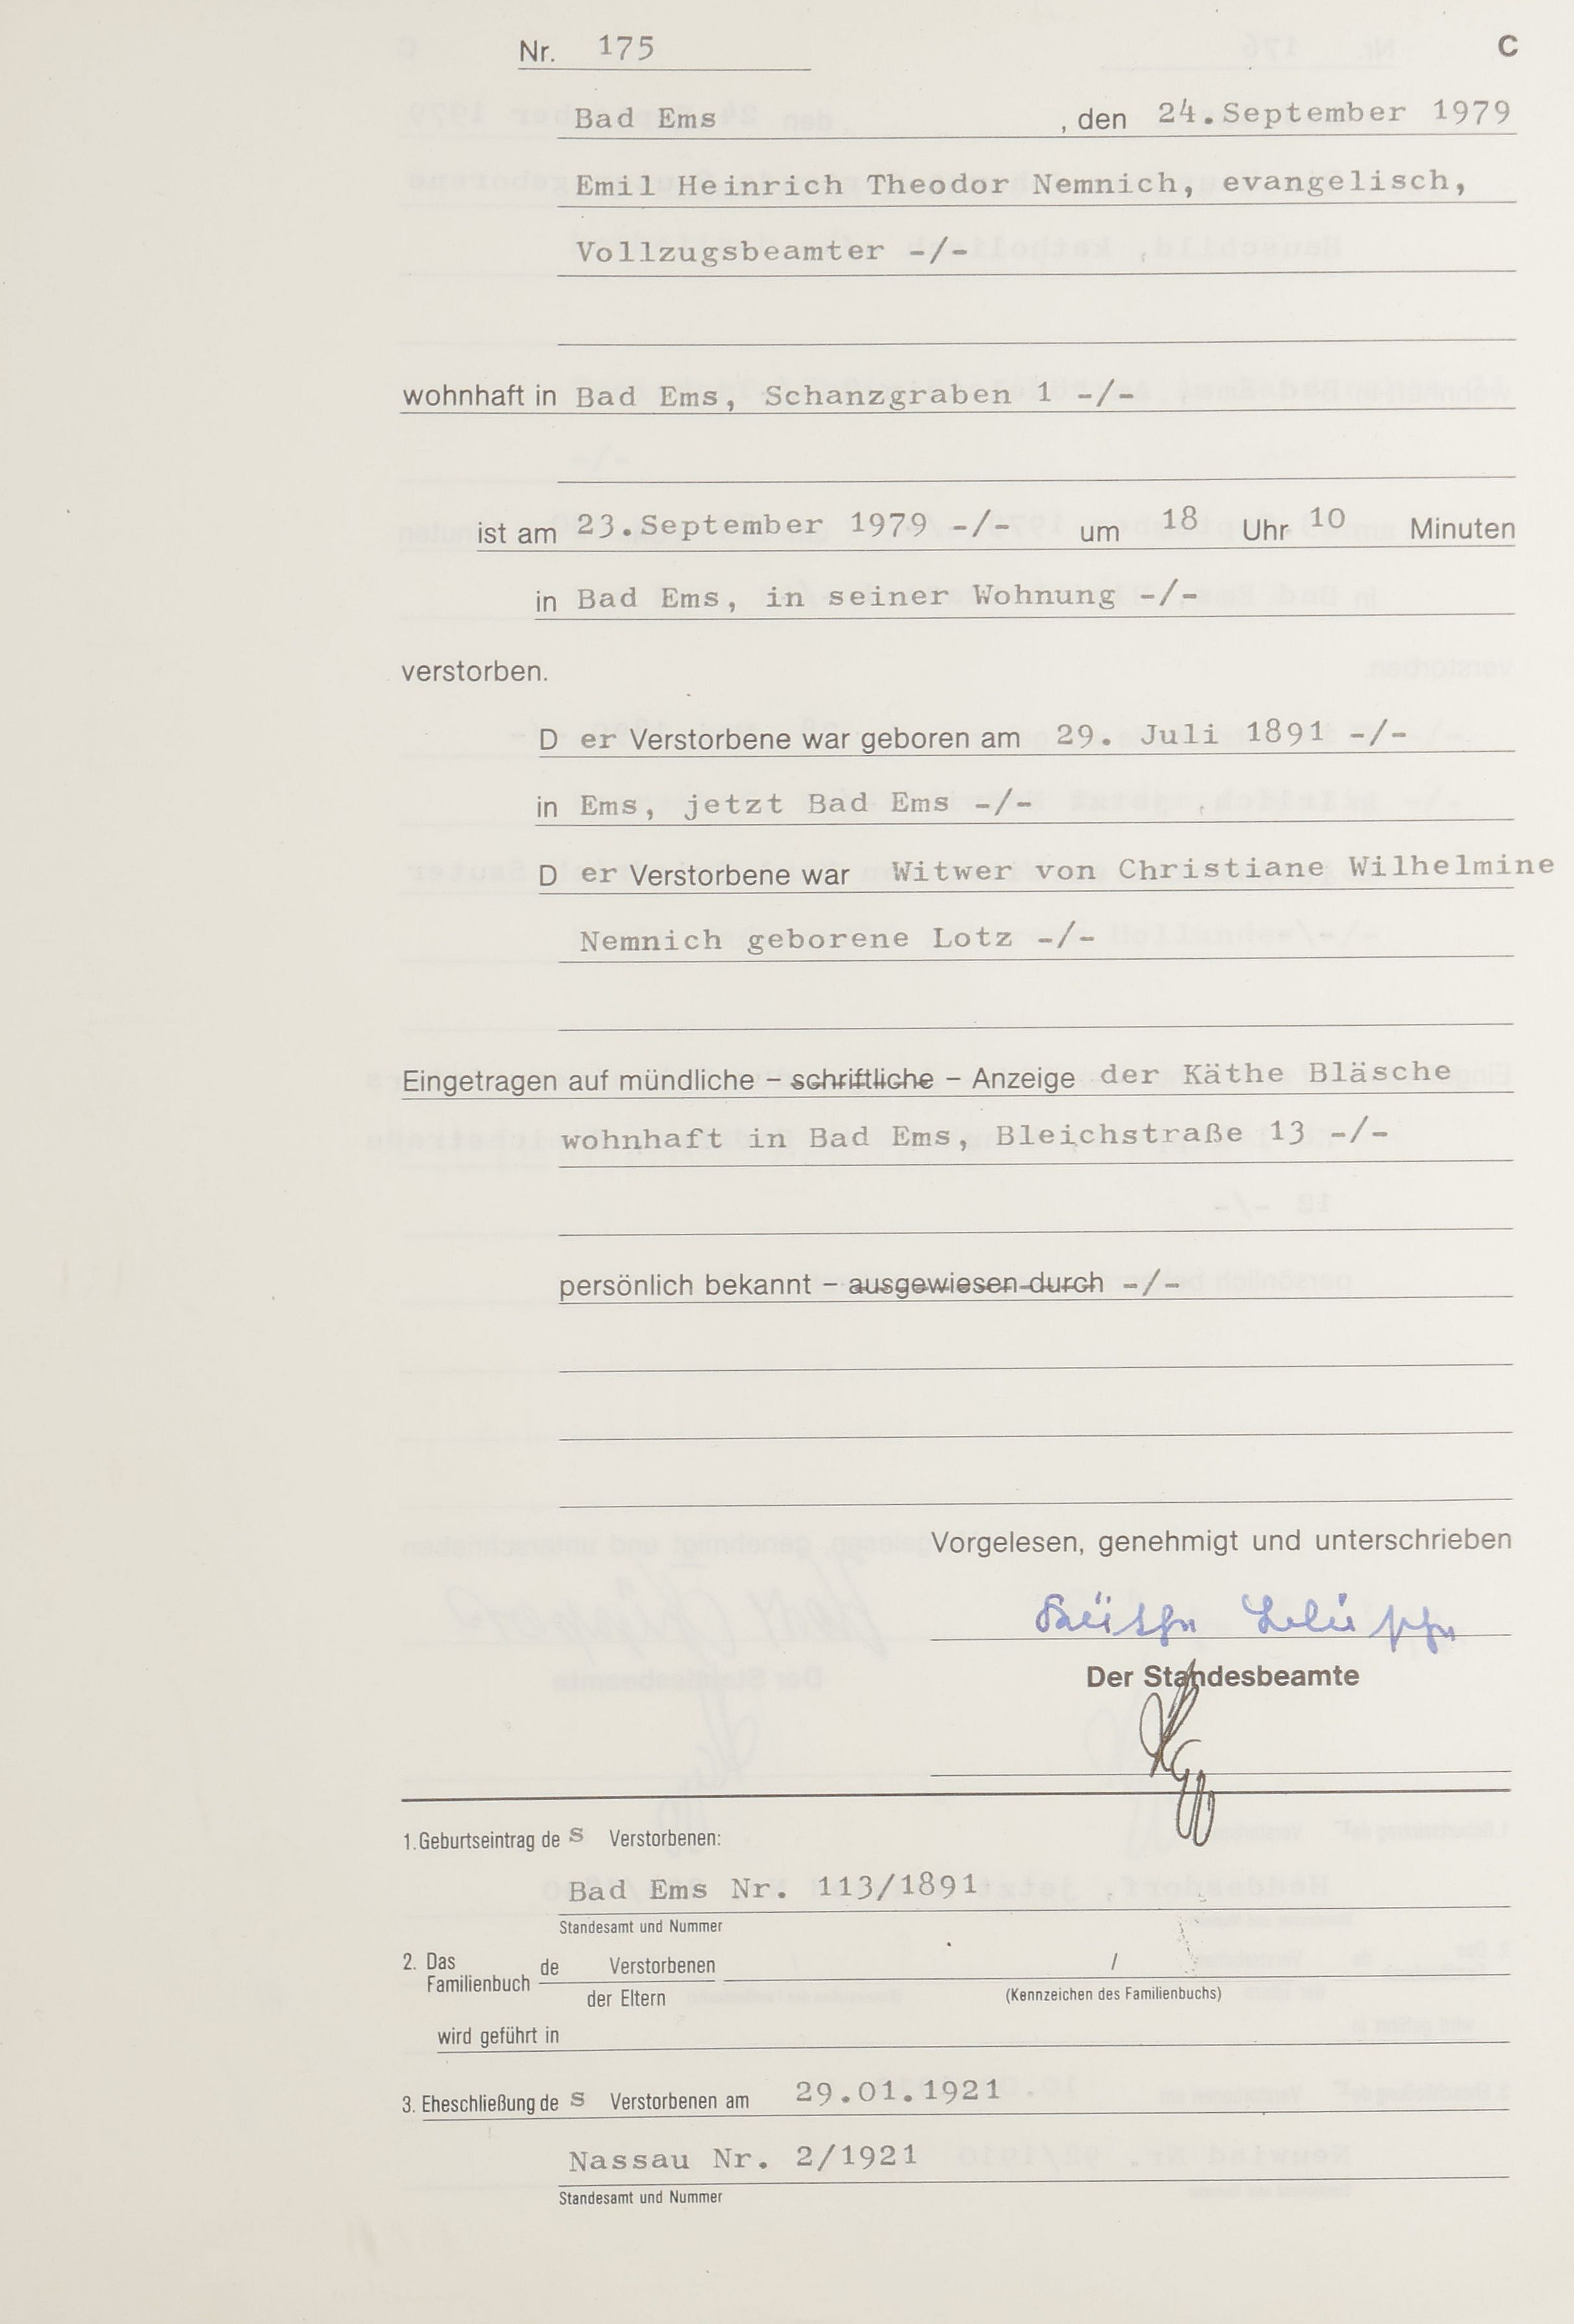 Nr. 175
C
Bad Ems , den 24.September 1979
Emil Heinrich Theodor Nemnich, evangelisch,
Vollzugsbeamter -/-
wohnhaft in Bad Ems, Schanzgraben 1 -/-
ist am 23.September 1979 -/- um 18 Uhr 10 Minuten
in Bad Ems, in seiner Wohnung -/-
verstorben.
D er Verstorbene war geboren am 29. Juli 1891 -/-
in Ems, jetzt Bad Ems -/-
D er Verstorbene war Witwer von Christiane Wilhelmine
Nemnich geborene Lotz -/-
Eingetragen auf mündliche – schriftliche – Anzeige der Käthe Bläsche
wohnhaft in Bad Ems, Bleichstraße 13 -/-
persönlich bekannt – ausgewiesen durch -/-
Vorgelesen, genehmigt und unterschrieben
Käthe Bläsche
Der Standesbeamte
1. Geburtseintrag de s Verstorbenen:
Bad Ems Nr. 113/1891
Standesamt und Nummer
2. Das Familienbuch de Verstorbenen /
der Eltern (Kennzeichen des Familienbuchs)
wird geführt in
3. Eheschließung de s Verstorbenen am 29.01.1921
Nassau Nr. 2/1921
Standesamt und Nummer